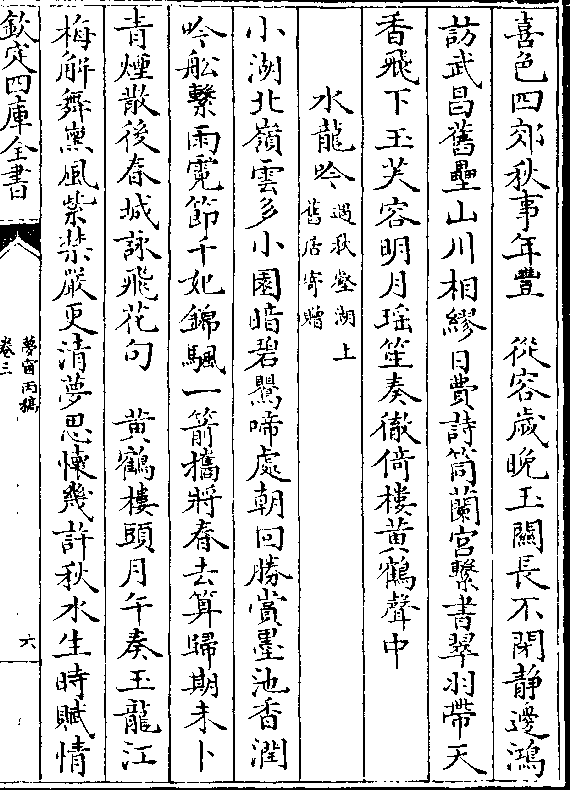 喜色四郊秋事年豐　從容歲晩玉關長不閉静邊鴻
訪武昌舊壘山川相繆日費詩筒蘭宫繫書翠羽帶天
香飛下玉芙容明月瑶笙奏徹倚樓黄鶴聲中
水龍吟過秋壑湖上
舊居寄贈
小湖北嶺雲多小園暗碧鶯啼處朝回勝賞墨池香潤
吟船繫雨霓節千妃錦颿一箭攜將春去算歸期未卜
青煙散後春城詠飛花句　黄鶴樓頭月午奏玉龍江
梅解舞薰風紫禁嚴更清夢思懐幾許秋水生時賦情
欽定四庫全書
夢窗丙稿
卷三
六